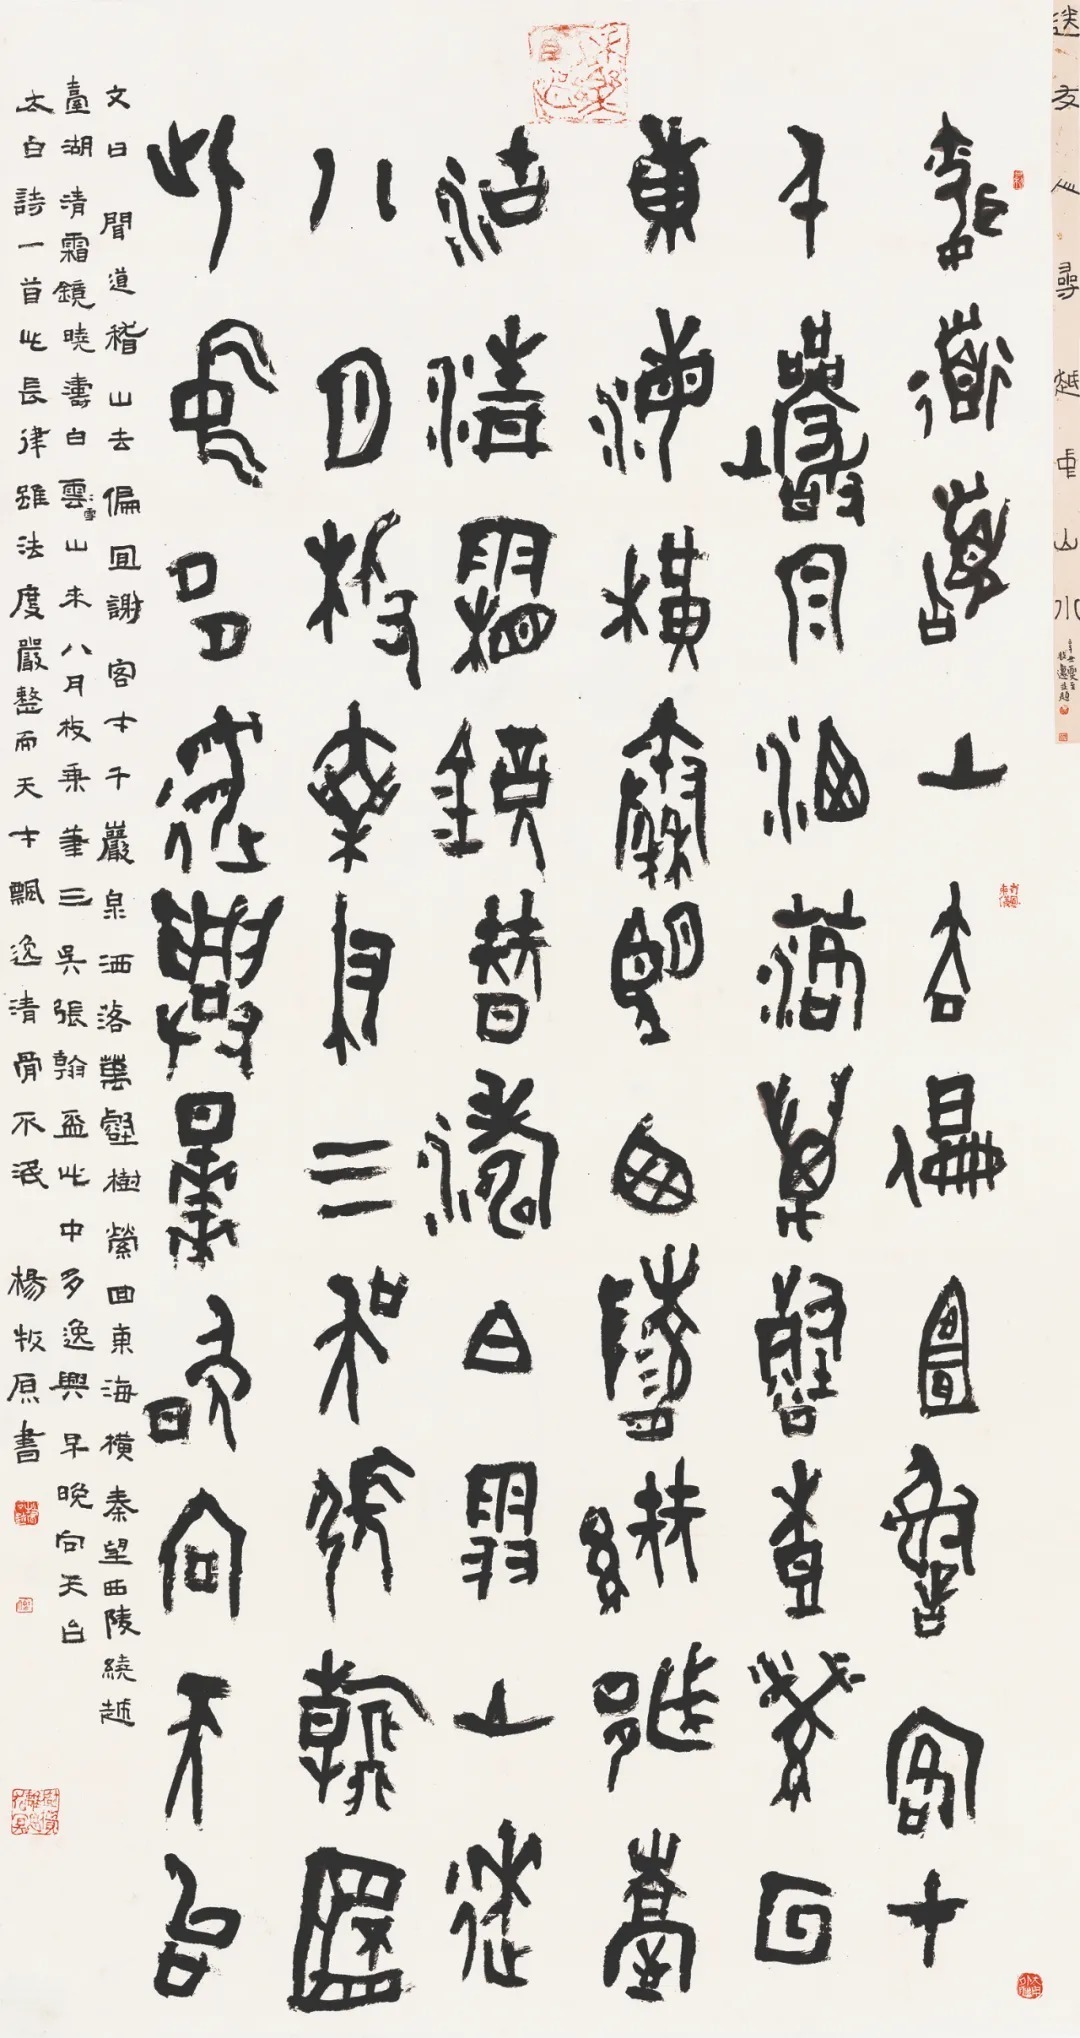 送友人尋越中山水
聞道稽山去偏宜謝客才
千巖泉洒落萬壑樹縈回
東海橫秦望西陵繞越臺
湖清霜鏡曉濤白雪山來
八月枚乘筆三吳張翰盃
此中多逸興早晚向天台
文曰聞道稽山去偏宜謝客才千巖泉洒落萬壑樹縈回東海橫秦望西陵繞越
臺湖清霜鏡曉濤白雲雪山來八月枚乘筆三吳張翰盃此中多逸興早晚向天台
太白詩一首此長律雖法度嚴整而天才飄逸清骨不泯 楊牧原書